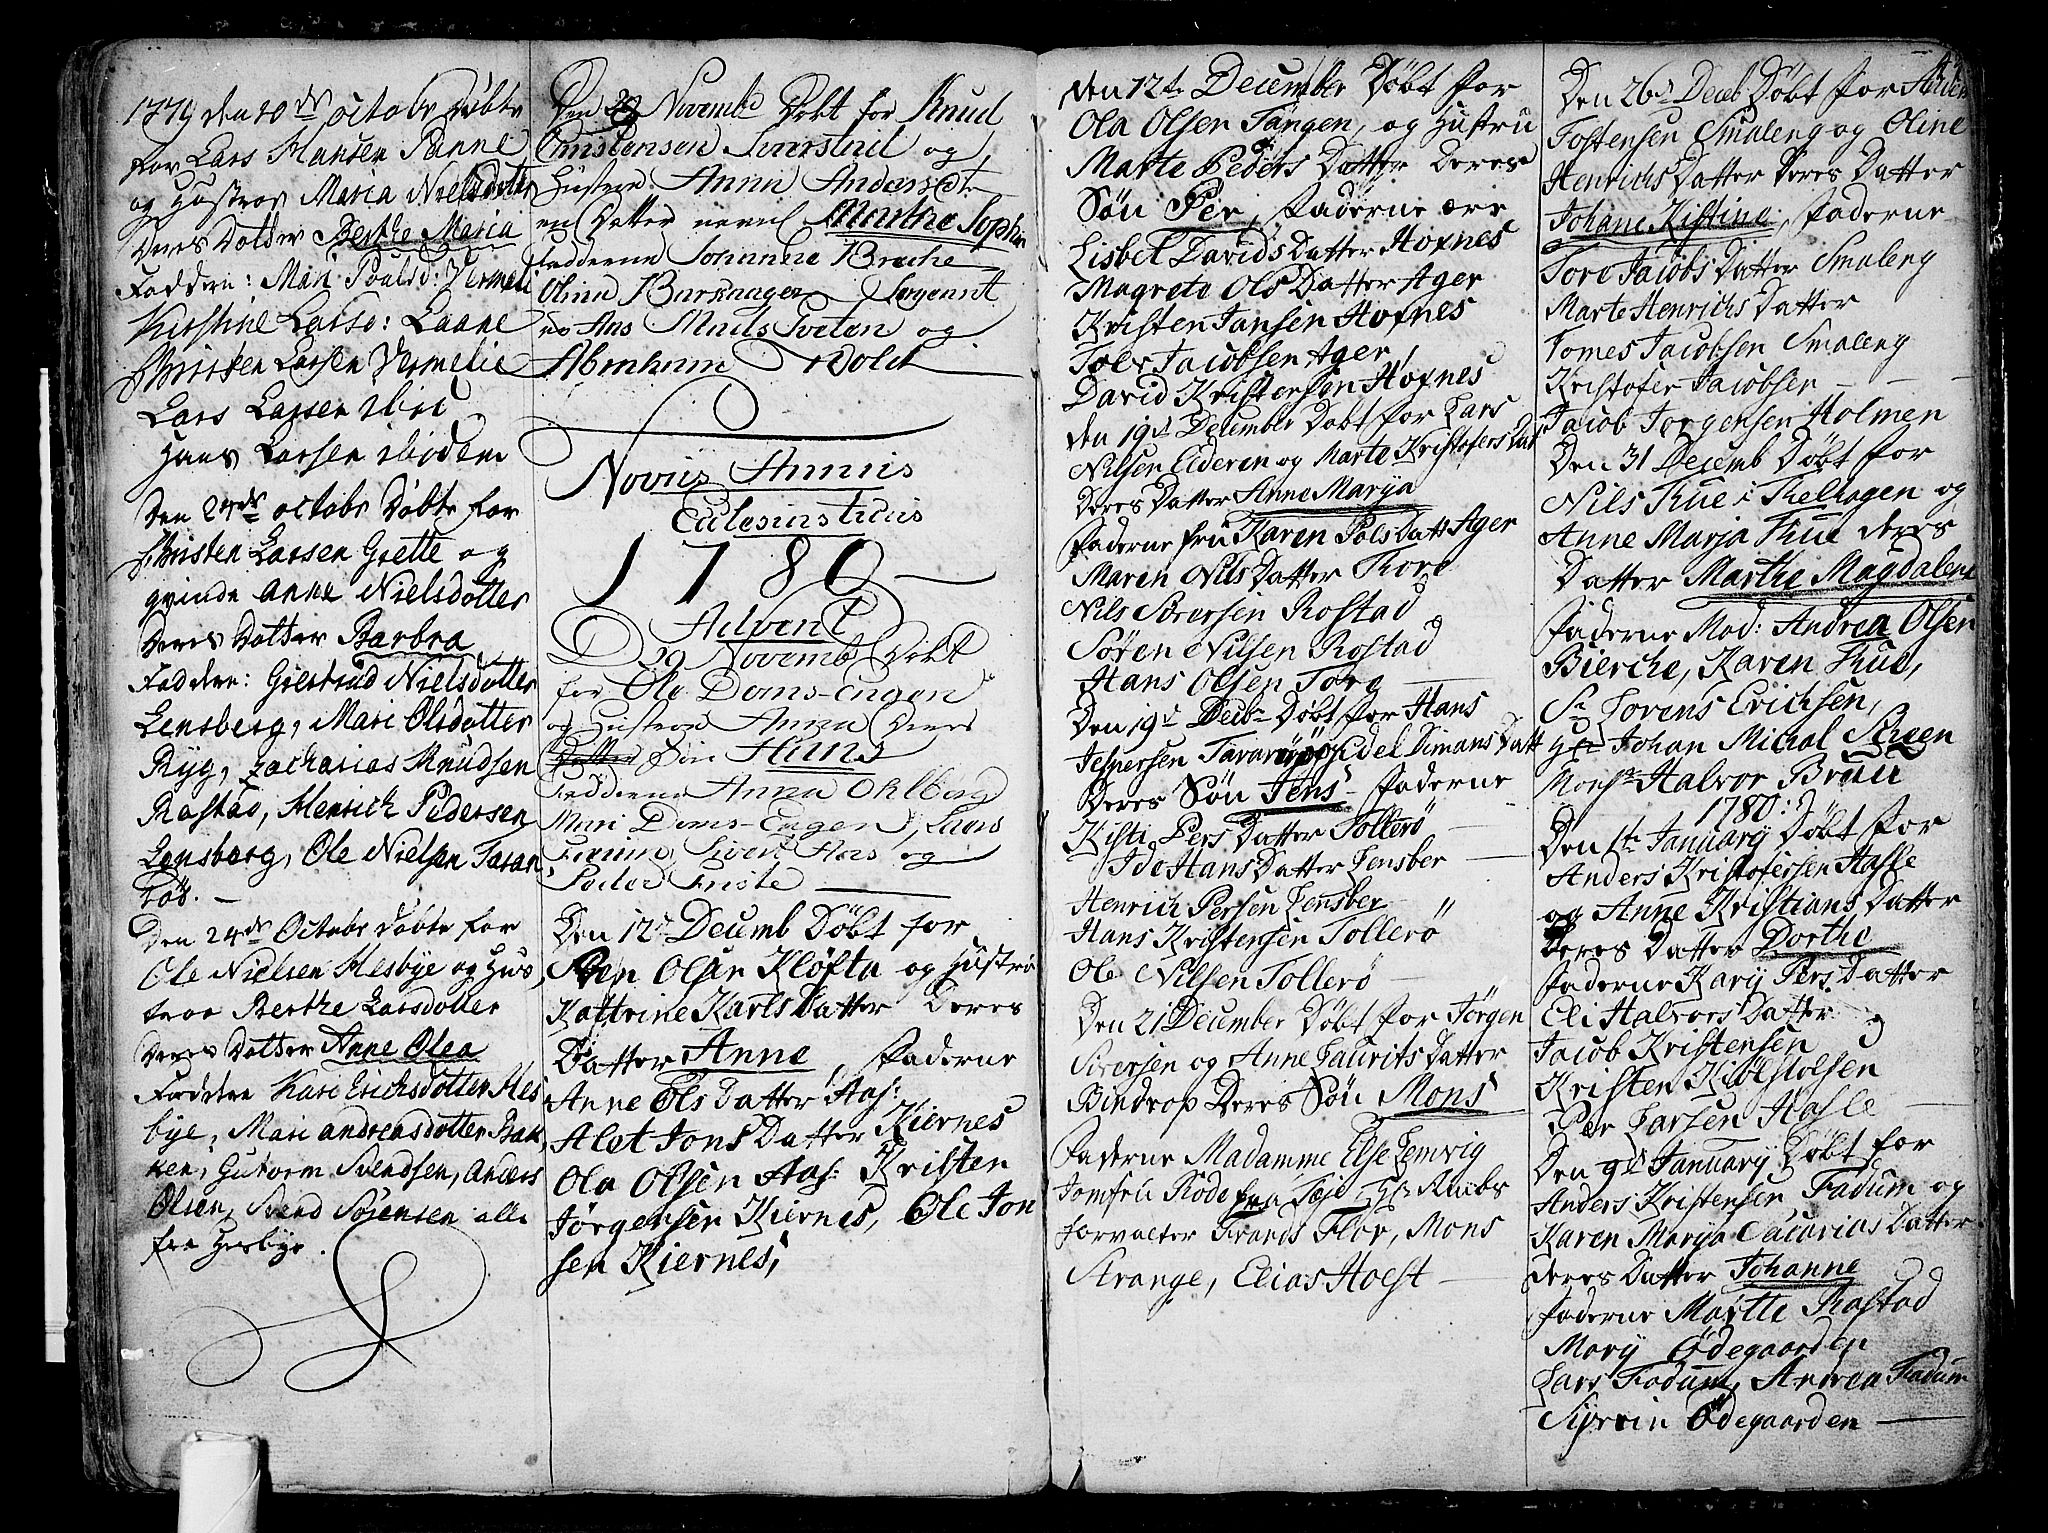 1779 den 10de octobr Døbte
for Lars Hansen Panne
og Hustroe Maria Nielsdotter
Deres Dotter Berthe Maria
Faddere: Mari Poulsd: Vermeli
Kirstine Larsd: Laane
Christen Larsen Vermelie
Lars Larsen
Hans Larsen
Den 24de octobr Døbte for
Christen Larsen Grette og
qvinde Anne Nielsdotter
Deres Dotter Barbra
Faddere: Giertrud Nielsdotter
Lensberg, Mari Olsdotter
Ryg, Zacharias Knudsen
Rastad, Henrich Pedersen
Lensberg, Ole Nielsen Tavan
Røs. —
Den 24de Octobr døbte for
Ole Nielsen Hesbye og Hus
troe Berthe Larsdotter
Deres Dotter Anne Olea
Faddere Kari Erichsdotter Hes
bye, Mari andreasdotter Bak
ken, Gutorm Svendsen, Anders
Olsen, Svend Sørensen alle
fra Hesbye.
Den Novembr Døbt for Knud
Christensen og
Hustroe Anna Andersdtr
en Datter navnl Marthe Sophie
Fadderne Johanna Breche
Olina Barknager Sergeant
Mads Eveten og
Abraham Bolet
Novus Annus
Eclesiasticus
1780
Advent
D 29 Novemb Døbt
for Ole Doms-Engen
og Hustroe Anna Deres
Datter Søn Hans
Fadderne Anna Ohlberg
Mari Doms-Engen, Lars
Sivert Aas og
Peder Friste
Den 12te Decemb Døbt for
Olsen Kløfta og Hustro
Kattrine Karls Datter Deres
Datter Anne, Faderne
Anne Ols Datter Aas:
Alet Jons Datter Kiernes
Ola Olsen Aas: Kristen
Jørgensen Kiernes, Ole Jon
sen Kiernes,
Den 12te December Døbt for
Ola Olsen Tangen, og Hustru
Marte Peders Datter Deres
Søn Per, Faderne ære
Lisbet Davids Datter Hofnes
Magrete Ols Datter Ager
Kristen Jansen Hofnes
Toer Jacobsen Ager,
David Kristensen Hofnes
den 19d December Døbt for Lars
Nilsen Elderen og Marte Kristofers Dat
Deres Datter Anne Marya
Faderne fru Karen Pols Datt Ager
Maren Nils Datter Thore
Nils Sørensen Rostad
Søren Nilsen Rostad
Hans Olsen Tore
Den 19d Decbr Døbt for Hans
Jespersen Tavarøp Edel Dimans Datt
Deres Søn Jens Faderne
Kisti Pers Datter Tollerø
Ide Hans Datter Lensber
Henrich Persen Lensber
Hans Kristensen Tollerø
Ole Nilsen Tollerø
Den 21 December Døbt for Jørgen
Siversen og Anne Laurits Datter
Bindrop Deres Søn Mons
Faderne Madamme Else Lemvig
Jomfru Rode fra Teje, Hr Raabs
forvalter Frands Flor, Mons
Strange, Elias Hoest
Den 26d Deceb Døbt for Halvor
Tostensen Smaleng og Oline
Henrichs Datter Deres Datter
Johane Kistine, Faderne
Tore Jacobs Datter Smaleng
Marte Henrichs Datter
Tomes Jacobsen Smaleng
Kristofer Jacobsen
Jacob Jorgensen Holmen
Den 31 Decemb Døbt for
Nils Thue i Thelhagen og
Anne Marja Thue deres
Datter Marthe Magdalene
Faderne Mad: Andrea Olsen
Bierche, Karen Thue,
Sr Lorens Erichsen,
Hr Johan Michal Screen
Monsr Halvor Bruu
1780:
Den 1te January Døbt for
Anders Kristofersen Hasle
og Anne Kristians Datter
Deres Datter Dorthe
Faderne Kary Pers Datter
Eli Halvors Datter og
Jacob Kristensen
Kristen Kibstolsen
Per Larsen Hasle
Den 9d January Døbt for
Anders Kristensen Fadum og
Karen Marya Cacarias Datter
deres Datter Johanne
Faderne Marte Rastad
Mary Ødegaarden
Lars Fadum, Andrea Fadum
Siversin Ødegaarden